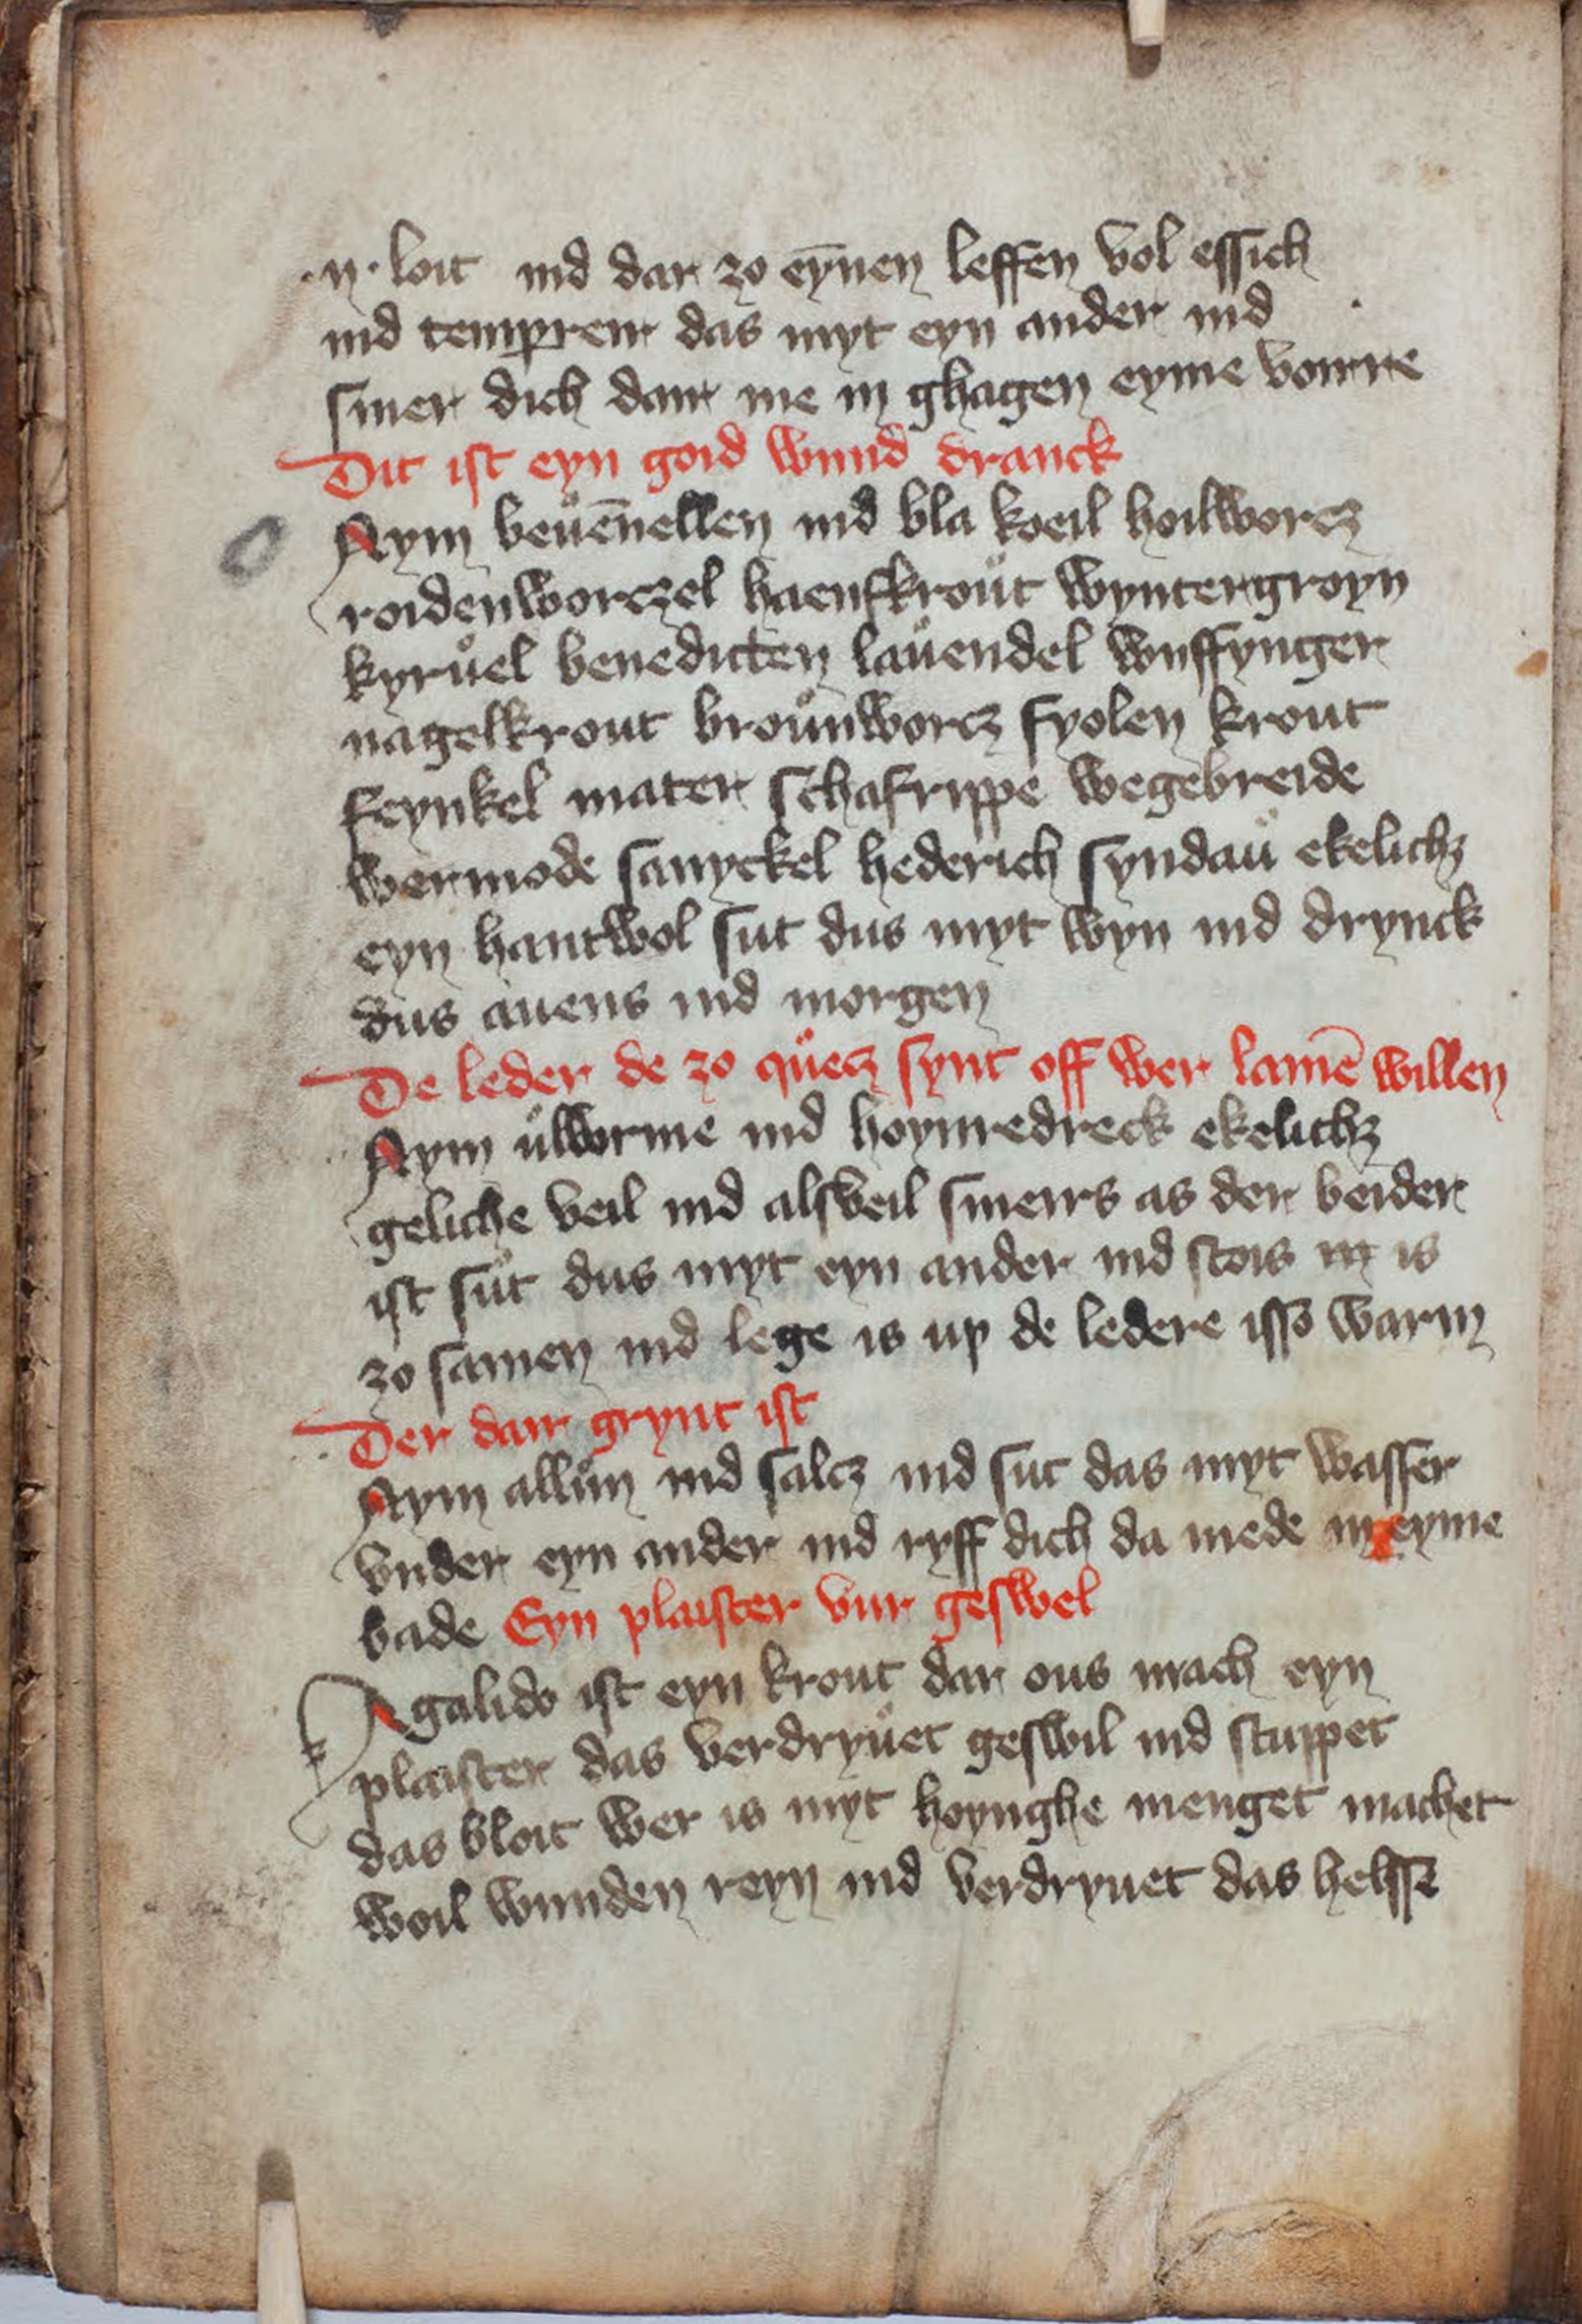 ·ij· loit ind dar zo eȳnen leffen vol essich
ind tempreir das myt eyn ander ind
smer dich dair me in ghagen eyme vourre
Dit ist eyn goid wund dranck
Nym beuͦēnellen ind bla koeil hoilworcz
roidenworczel haenfkrouͦt wyntergroyn
kyruͦel benedicten lauͦendel wiffynger
nagelkrout brouͦnworcz fyolen krout
feynkel mater schafrippe wegebreide
wermode sanyckel hederich syndauͦ ekelichz
eyn hantwol sut dus myt wyn ind drynck
dus auens ind morgen
De leder de zo queͦcz synt off wer lamē willen
Nym uͦlworme ind hoynredreck ekelichz
geliche veil ind alsveil smeirs as der beider
ist suͦt dus myt eyn ander ind stois is
zo samen ind lege is up de ledere isso warm
Der dair grynt ist
Nym alluͦn ind salcz ind sut das myt wasser
vnder eyn ander ind ryff dich da mede in eyme
bade Eyn plaister vur geswel
Agalido ist eyn krout dar ous mach eyn
plaister das verdryuͦet geswil ind stuppet
das bloit wer is myt hoynghe menget machet
woil wunden reyn ind verdryuet das helsse